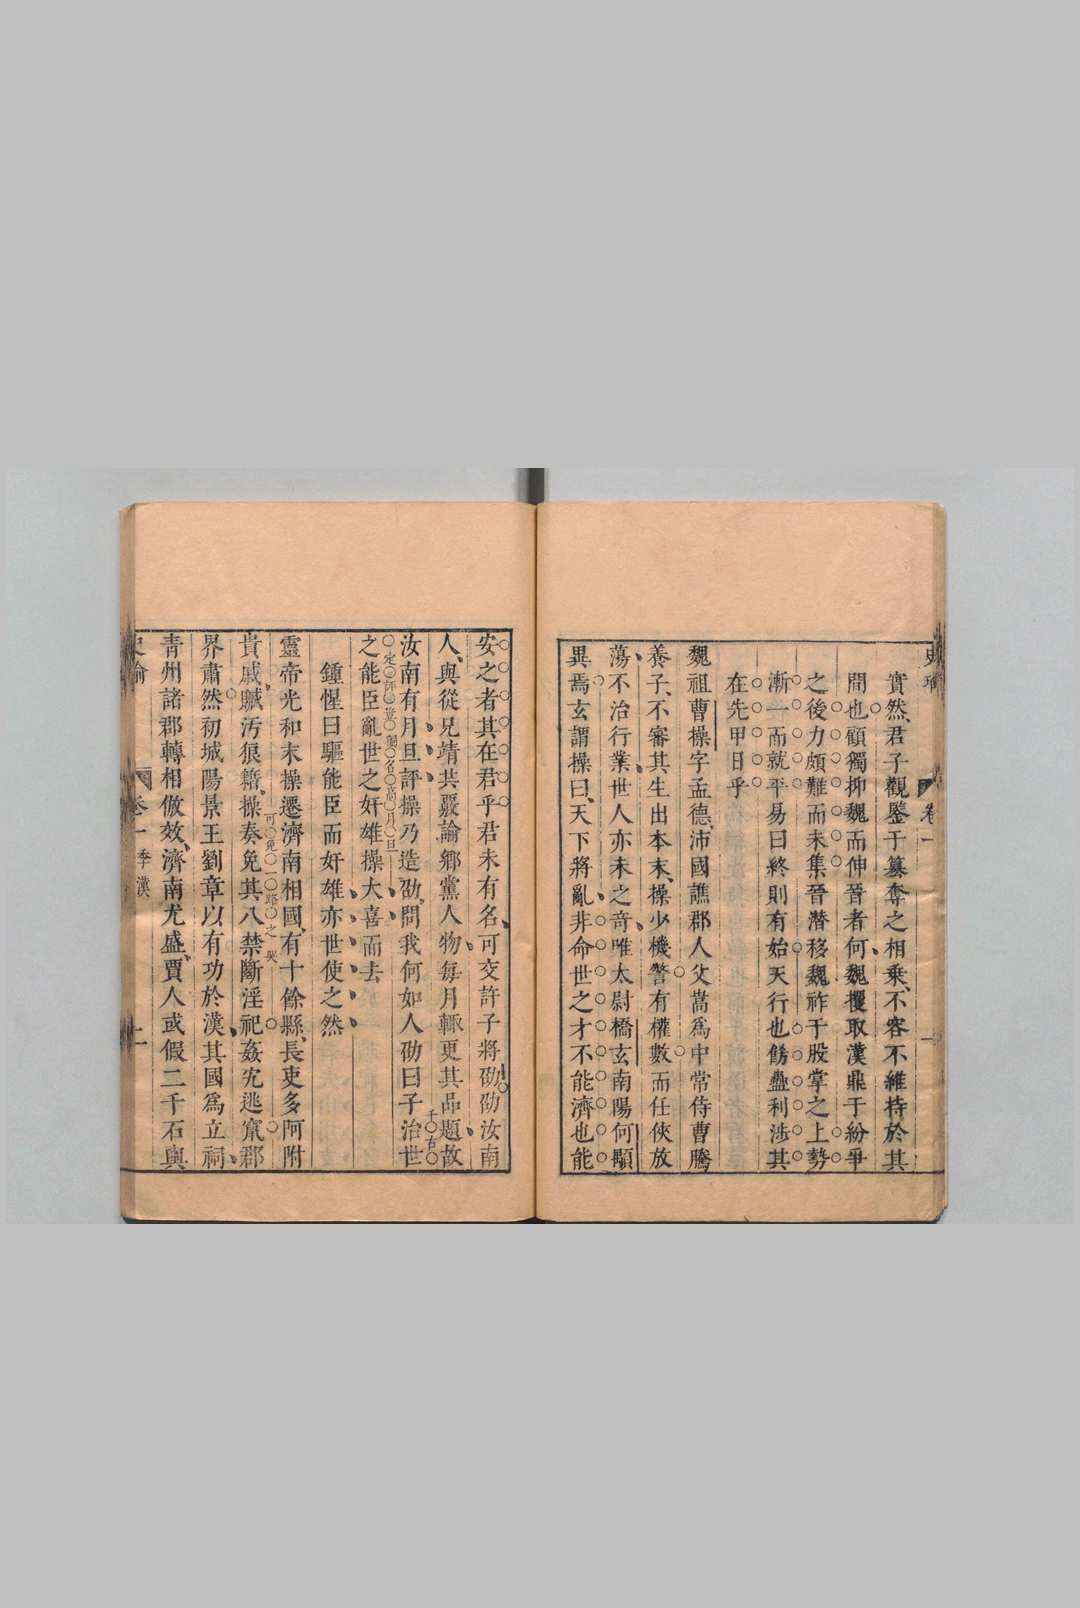 實然君子觀鑒于篡奪之相乗不容不維持於其
間也顧獨抑魏而伸晉者何魏攫取漢鼎于紛爭
之後力頗難而未集晉潛移魏祚于股掌之上勢
漸一而就平易曰終則有始天行也飭蠱利涉其
在先甲日乎
魏祖曹操字孟德沛國譙郡人父嵩爲中常侍曹騰
養子不審其生出本末操少機警有權數而任俠放
蕩不治行業世人亦未之奇唯太尉橋玄南陽何顒
異焉玄謂操曰天下將亂非命世之才不能濟也能
安之者其在君乎君未有名可交許子將劭劭汝南
人與從兄靖共覈論鄉黨人物每月輒更其品題故
汝南有月旦評操乃造劭問我何如人劭曰子治世
千古
定評當與名高月旦
之能臣亂世之奸雄操大喜而去
鍾惺曰驅能臣而奸雄亦世使之然
靈帝光和末操遷濟南相國有十餘縣長吏多阿附
可免一路之哭
貴戚贓汚狼籍操奏免其八禁斷淫祀姦宄逃竄郡
界肅然初城陽景王劉章以有功於漢其國爲立祠
青州諸郡轉相倣效濟南尤盛賈人或假二千石輿
卷一
卷一 季漢
二